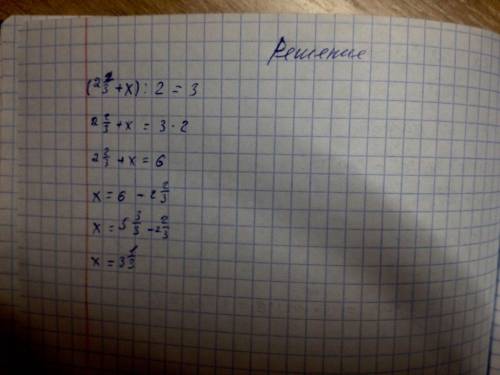 Решение
(2 2/3 + x) : 2 = 3
2 2/3 + x = 3 · 2
2 2/3 + x = 6
x = 6 - 2 2/3
x = 5 3/3 - 2 2/3
x = 3 1/3